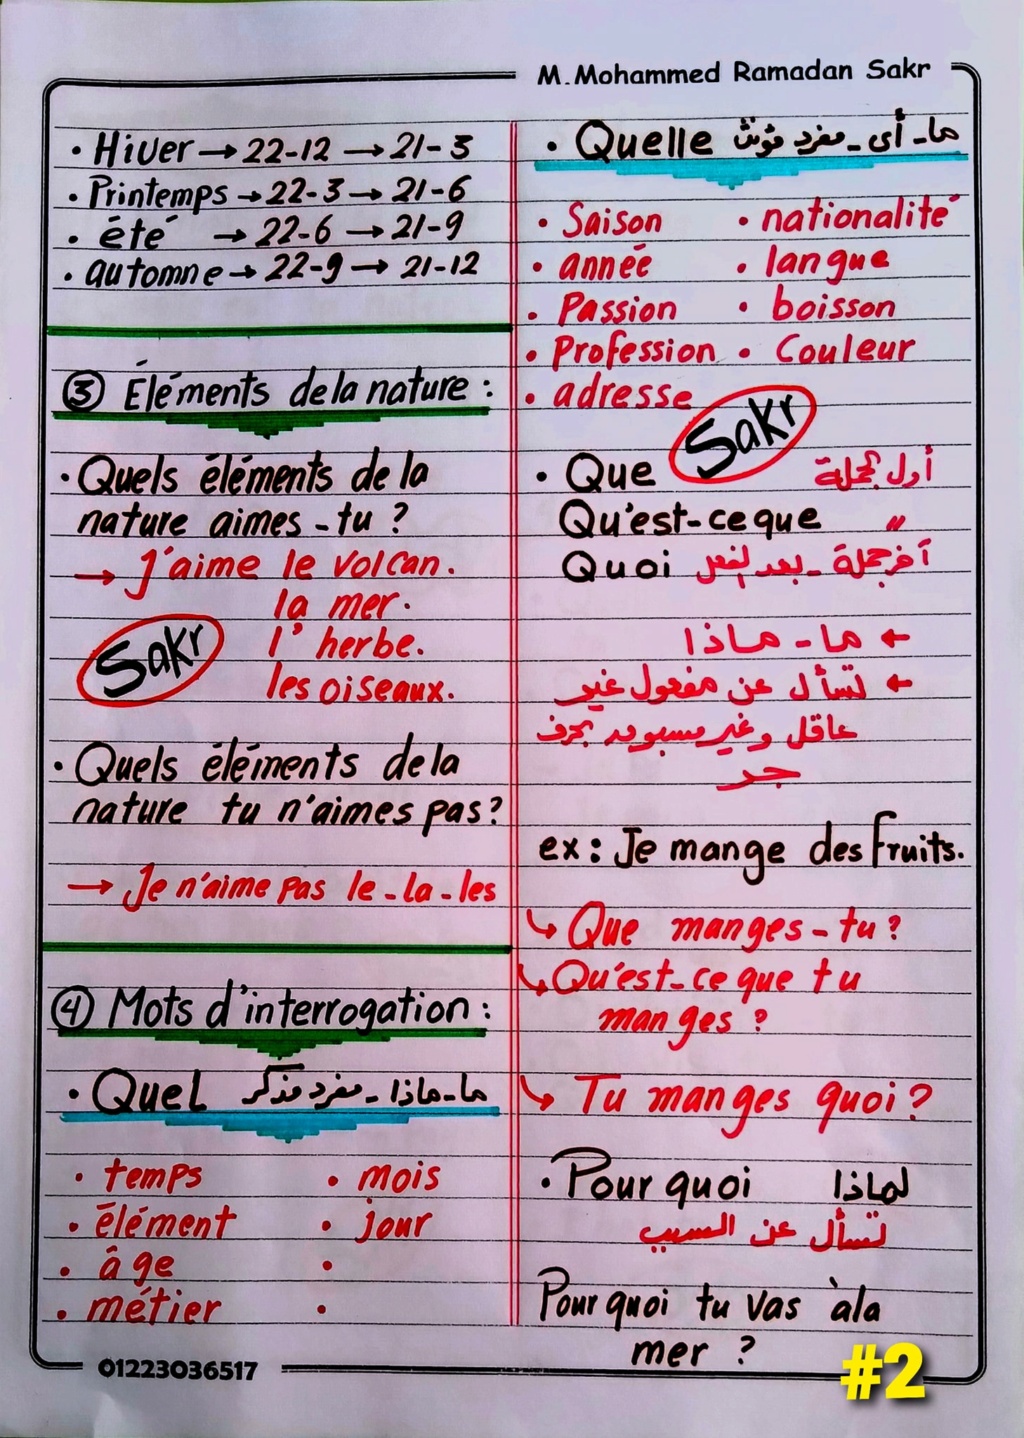 M.Mohammed Ramadan Sakr
• Hiver → 22-12 → 21-3
• Printemps → 22-3 → 21-6
• été → 22-6 → 21-9
• automne → 22-9 → 21-12
③ Éléments de la nature :
• Quels éléments de la
nature aimes-tu ?
→ J'aime le volcan.
la mer.
l'herbe.
les oiseaux.
Sakr
• Quels éléments de la
nature tu n'aimes pas ?
→ Je n'aime pas le-la-les
④ Mots d'interrogation :
• Quel ما-ماذا - مفرد مذكر
• temps • mois
• élément • jour
• âge •
• métier •
• Quelle ما - أى - مفرد مؤنث
• Saison • nationalité
• année • langue
• Passion • boisson
• Profession • Couleur
• adresse
Sakr
• Que أول الجملة
Qu'est-ce que "
Quoi آخر جملة - بعد الفعل
← ما - ماذا
← تسأل عن مفعول غير
عاقل وغير مسبوق بحرف
جر
ex : Je mange des fruits.
↳ Que manges-tu ?
↳ Qu'est-ce que tu
manges ?
↳ Tu manges quoi ?
• Pourquoi لماذا
تسأل عن السبب
Pourquoi tu vas à la
mer ?
01223036517
#2